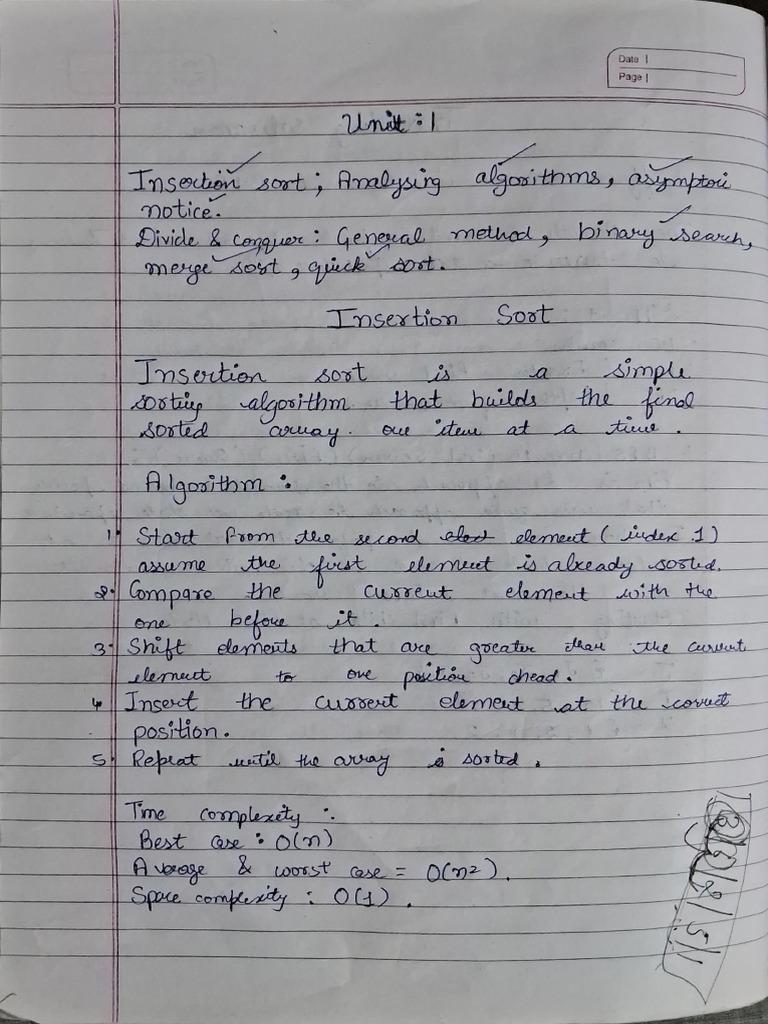 Date
Page
Unit : 1
Insertion sort ; Analysing algorithms, asymptoic
notice.
Divide & conquer : General method, binary search,
merge sort, quick sort.
Insertion Sort
Insertion sort is a simple
sorting algorithm that builds the final
sorted array. one item at a time.
Algorithm :
1. Start from the second element (index 1)
assume the first element is already sorted.
2. Compare the current element with the
one before it.
3. Shift elements that are greater than the current
element to one position ahead.
4 Insert the current element at the correct
position.
5. Repeat until the array is sorted.
Time complexity :
Best case : O(n)
Average & worst case = O(n²).
Space complexity : O(1).